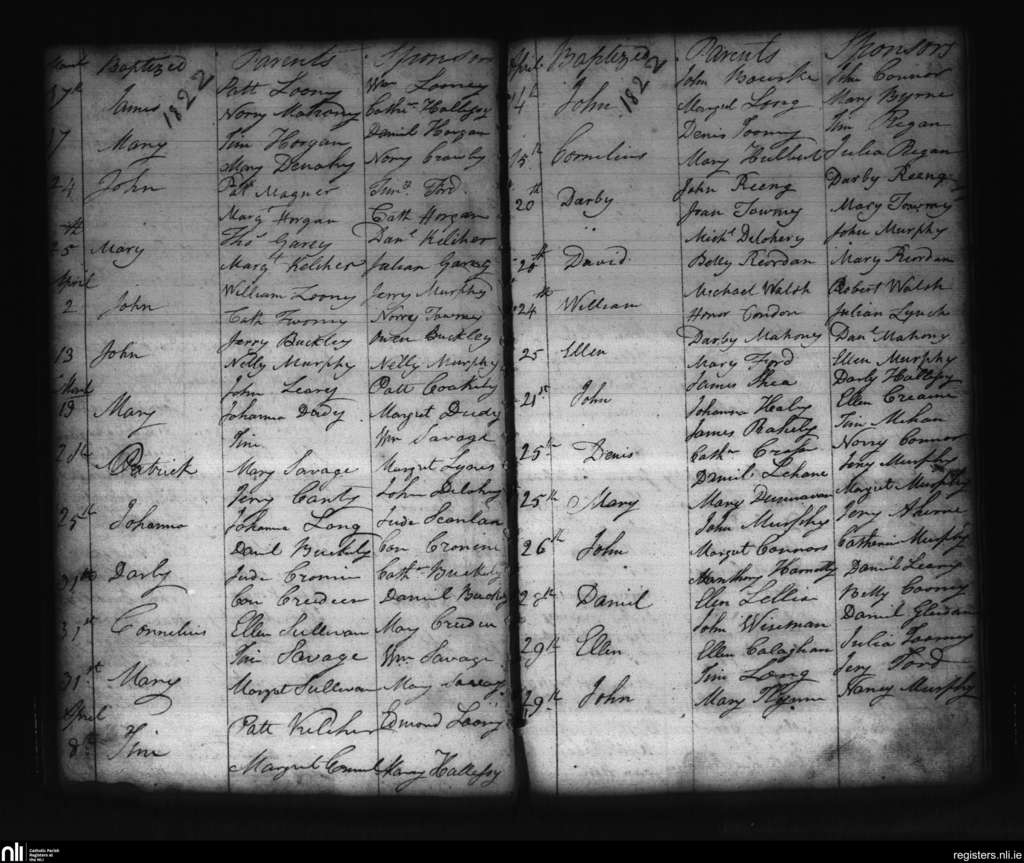 Baptized Parents Sponsors
1822
17th James Patt Loony Wm Looney
Norry Mahony Cathn Hallessy
17 Mary Tim Horgan Daniel Horgan
Mary Denahy Norry Crowly
24 John Patt Magner Timo Ford.
Margt Horgan Cath Horgan
25th Mary Thos Garey Danl Keliher
Margt Keliher Julian Garey
April
2 John William Loony Jerry Murphy
Cath Twomy Norry Towmy
13 John Jerry Buckley Owen Buckley
Nelly Murphy Nelly Murphy
March
19 Mary John Leary Patt Coakily
Johanna Dudy Margret Dudy
28th Patrick Tim Wm Savage
Mary Savage Margret Lyons
25th Johanna Jerry Canty John Delohry
Johanna Long Jude Scanlan
31st Darby Daniel Buckely Con Cronine
Jude Cronin Cathn Buckely
31st Cornelius Con Creedeen Daniel
Ellen Sullivan Mary Creeden
31st Mary Tim Savage Wm Savage
Margret Sullivan Mary Savage
April
8th Tim Patt Kelcher Edmond Loony
Margret Mary Hallessy
April Baptized Parents Sponsors
1822
14th John John Rourke John Connor
Margret Long Mary Byrne
15th Cornelius Denis Toomy Tim Regan
Mary Julia Regan
20th Darby John Reeng Darby Reeng
Joan Towmy Mary Towmy
20th David Michl Delohery John Murphy
Betty Reordan Mary Riordan
24th William Michael Walsh Robert Walsh
Honor Condon Julian Lynch
25 Ellen Darby Mahony Danl Mahony
Mary Ford Ellen Murphy
21st John James Shea Darly Hallessy
Johanna Healy Ellen Creamer
25th Denis James Tim Mehan
Cathn Norry Connor
25th Mary Daniel Lehane Jery Murphy
Mary Margret Murphy
26th John John Murphy Jery Aherne
Margret Connors Catherine Murphy
28th Daniel Manthony Harnetty Daniel Leary
Elen Betty Coony
29th Ellen John Wiseman Daniel
Ellen Calaghan Julia Toomey
29th John Tim Long Jery Ford
Mary Flynne Nancy Murphy
nli Catholic Parish
Registers at
the NLI
registers.nli.ie